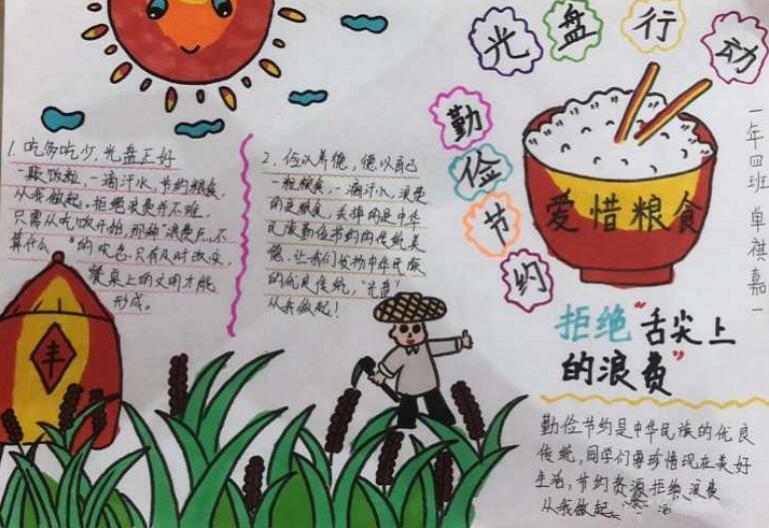 光盘行动
勤俭节约
一年四班 卓祺嘉
爱惜粮食
拒绝"舌尖上
的浪费"
1. 吃多吃少,光盘正好
一颗饭粒,一滴汗水,节约粮食,
从我做起。拒绝浪费并不难,
只需从吃饭开始,那种"浪费点不
算什么"的 ,只有及时改演,
餐桌上的文明才能
形成。
2. 俭以养德,德以自己
一粒粮食,一滴汗水,浪费
的是粮食,丢掉的是中华
民族勤俭节约的传统美
德,让我们发扬中华民族
的优良传统,"光盘"
从我做起!
丰
勤俭节约是中华民族的优良
传统,同学们要珍惜现在美好
生活,节约资源拒绝浪费
从我做起。